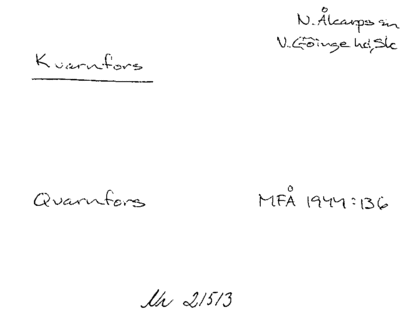 N. Åkarps sn
V. Göinge hd, Sk
Kvarnfors
Quarnfors MFÅ 1944:136
21513